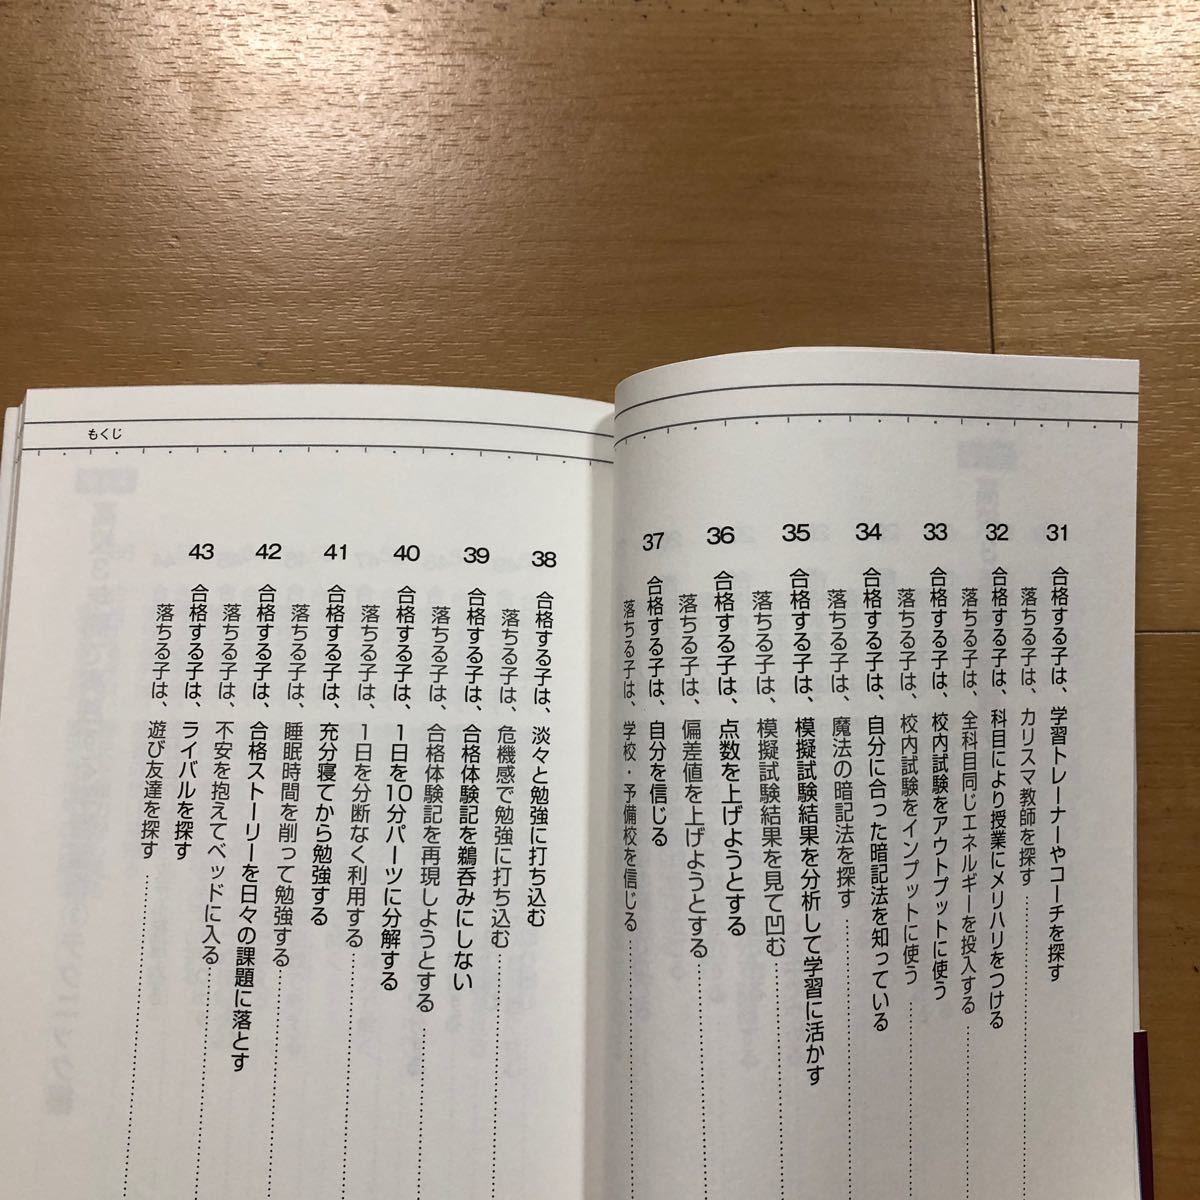 31 合格する子は、学習トレーナーやコーチを探す
落ちる子は、カリスマ教師を探す
32 合格する子は、科目により授業にメリハリをつける
落ちる子は、全科目同じエネルギーを投入する
33 合格する子は、校内試験をアウトプットに使う
落ちる子は、校内試験をインプットに使う
34 合格する子は、自分に合った暗記法を知っている
落ちる子は、魔法の暗記法を探す
35 合格する子は、模擬試験結果を分析して学習に活かす
落ちる子は、模擬試験結果を見て凹む
36 合格する子は、点数を上げようとする
落ちる子は、偏差値を上げようとする
37 合格する子は、自分を信じる
落ちる子は、学校・予備校を信じる
もくじ
38 合格する子は、淡々と勉強に打ち込む
落ちる子は、危機感で勉強に打ち込む
39 合格する子は、合格体験記を鵜呑みにしない
落ちる子は、合格体験記を再現しようとする
40 合格する子は、1日を10分パーツに分解する
落ちる子は、1日を分断なく利用する
41 合格する子は、充分寝てから勉強する
落ちる子は、睡眠時間を削って勉強する
42 合格する子は、合格ストーリーを日々の課題に落とす
落ちる子は、不安を抱えてベッドに入る
43 合格する子は、ライバルを探す
落ちる子は、遊び友達を探す